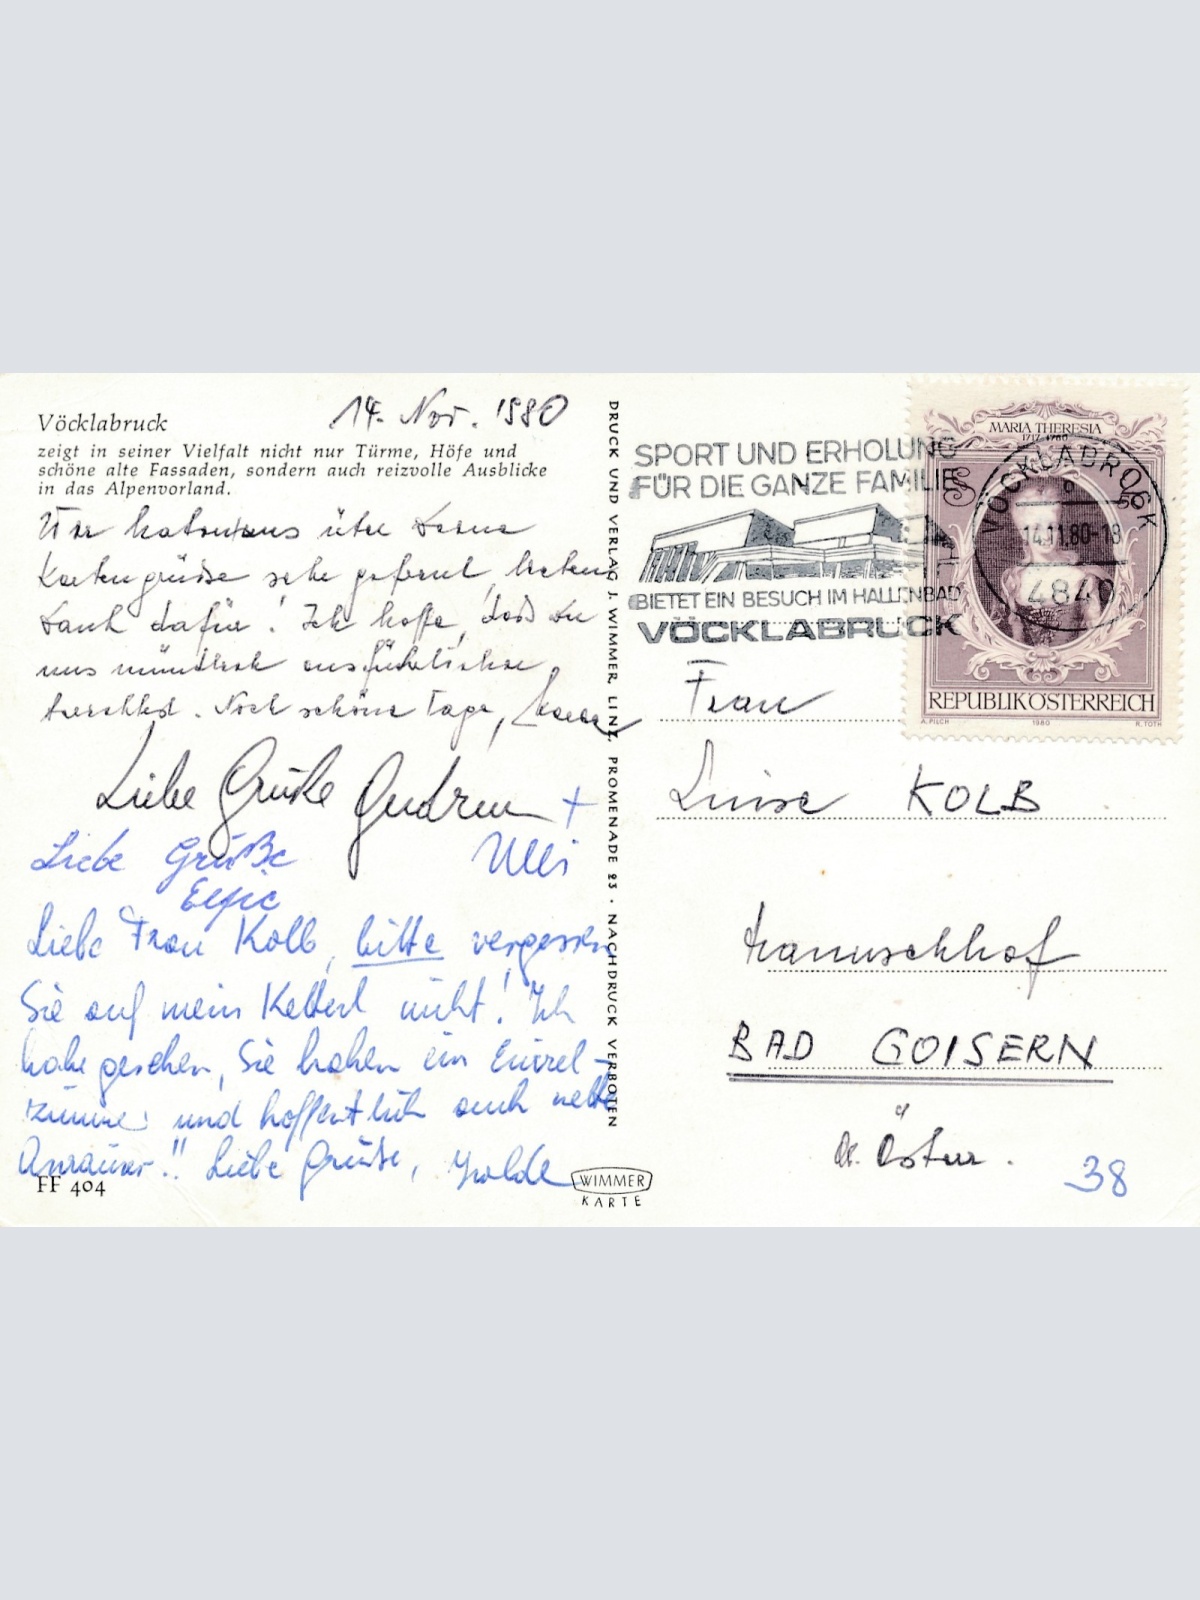 14. Nov. 1980
Vöcklabruck
zeigt in seiner Vielfalt nicht nur Türme, Höfe und
schöne alte Fassaden, sondern auch reizvolle Ausblicke
in das Alpenvorland.
Wir haben uns über Deine
Kartengrüße sehr gefreut, herten
Dank dafür! Ich hoffe, daß Du
uns mündlich ausführlicher
berichtest. Noch schöne Tage,
Liebe Grüße Gudrun +
Liebe Grüße Ulli
Elfie
Liebe Frau Kolb, bitte vergessen
Sie auf mein Ketterl nicht! Ich
habe gesehen, Sie haben ein Einzel-
zimmer und hoffentlich auch nette
Anrainer!! Liebe Grüße, Isolde
FF 404
WIMMER
KARTE
DRUCK UND VERLAG J. WIMMER, LINZ, PROMENADE 23 · NACHDRUCK VERBOTEN
SPORT UND ERHOLUNG
FÜR DIE GANZE FAMILIE
BIETET EIN BESUCH IM HALLENBAD
VÖCKLABRUCK
VÖCKLABRUCK
14.11.80-18
4840
MARIA THERESIA
1717-1780
S 2 50
REPUBLIK ÖSTERREICH
A. PILCH 1980 R. TOTH
Frau
Luise KOLB
Hanuschhof
BAD GOISERN
O. Österr.
38